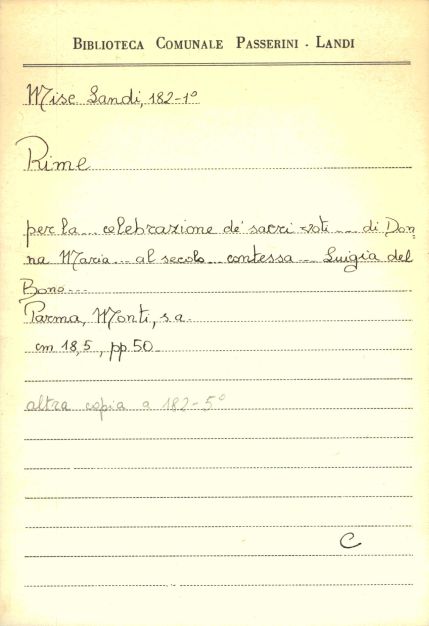 BIBLIOTECA COMUNALE PASSERINI - LANDI
Misc Landi, 182-1°
Rime
per la... celebrazione de' sacri voti... di Don
na Maria... al secolo... contessa... Luigia del
Bono...
Parma, Monti, s.a.
cm 18,5, pp 50.
altra copia a 182-5°
C